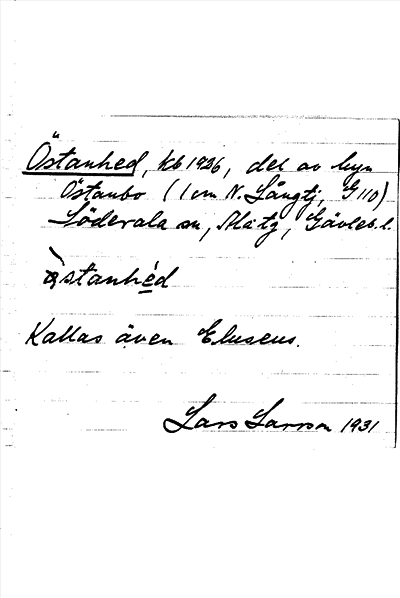 Östanhed, kb 1926, del av byn
Östanbo (1 cm N. Långtj, G110)
Söderala sn, Ala tg, Gävleb. l.
östanhed
Kallas även Eluseus.
Lars Larsson 1931